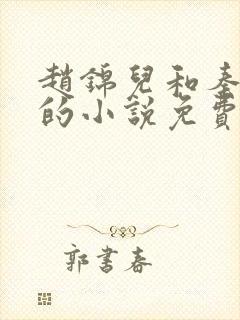 趙錦兒和秦
的小說免費
郭書春